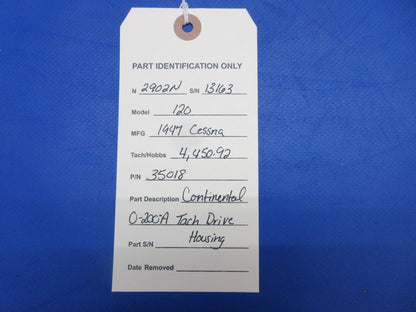 PART IDENTIFICATION ONLY
N 2902N S/N 13163
Model 120
MFG 1947 Cessna
Tach/Hobbs 4,450.92
P/N 35018
Part Description Continental
O-200A Tach Drive
Part S/N Housing
Date Removed